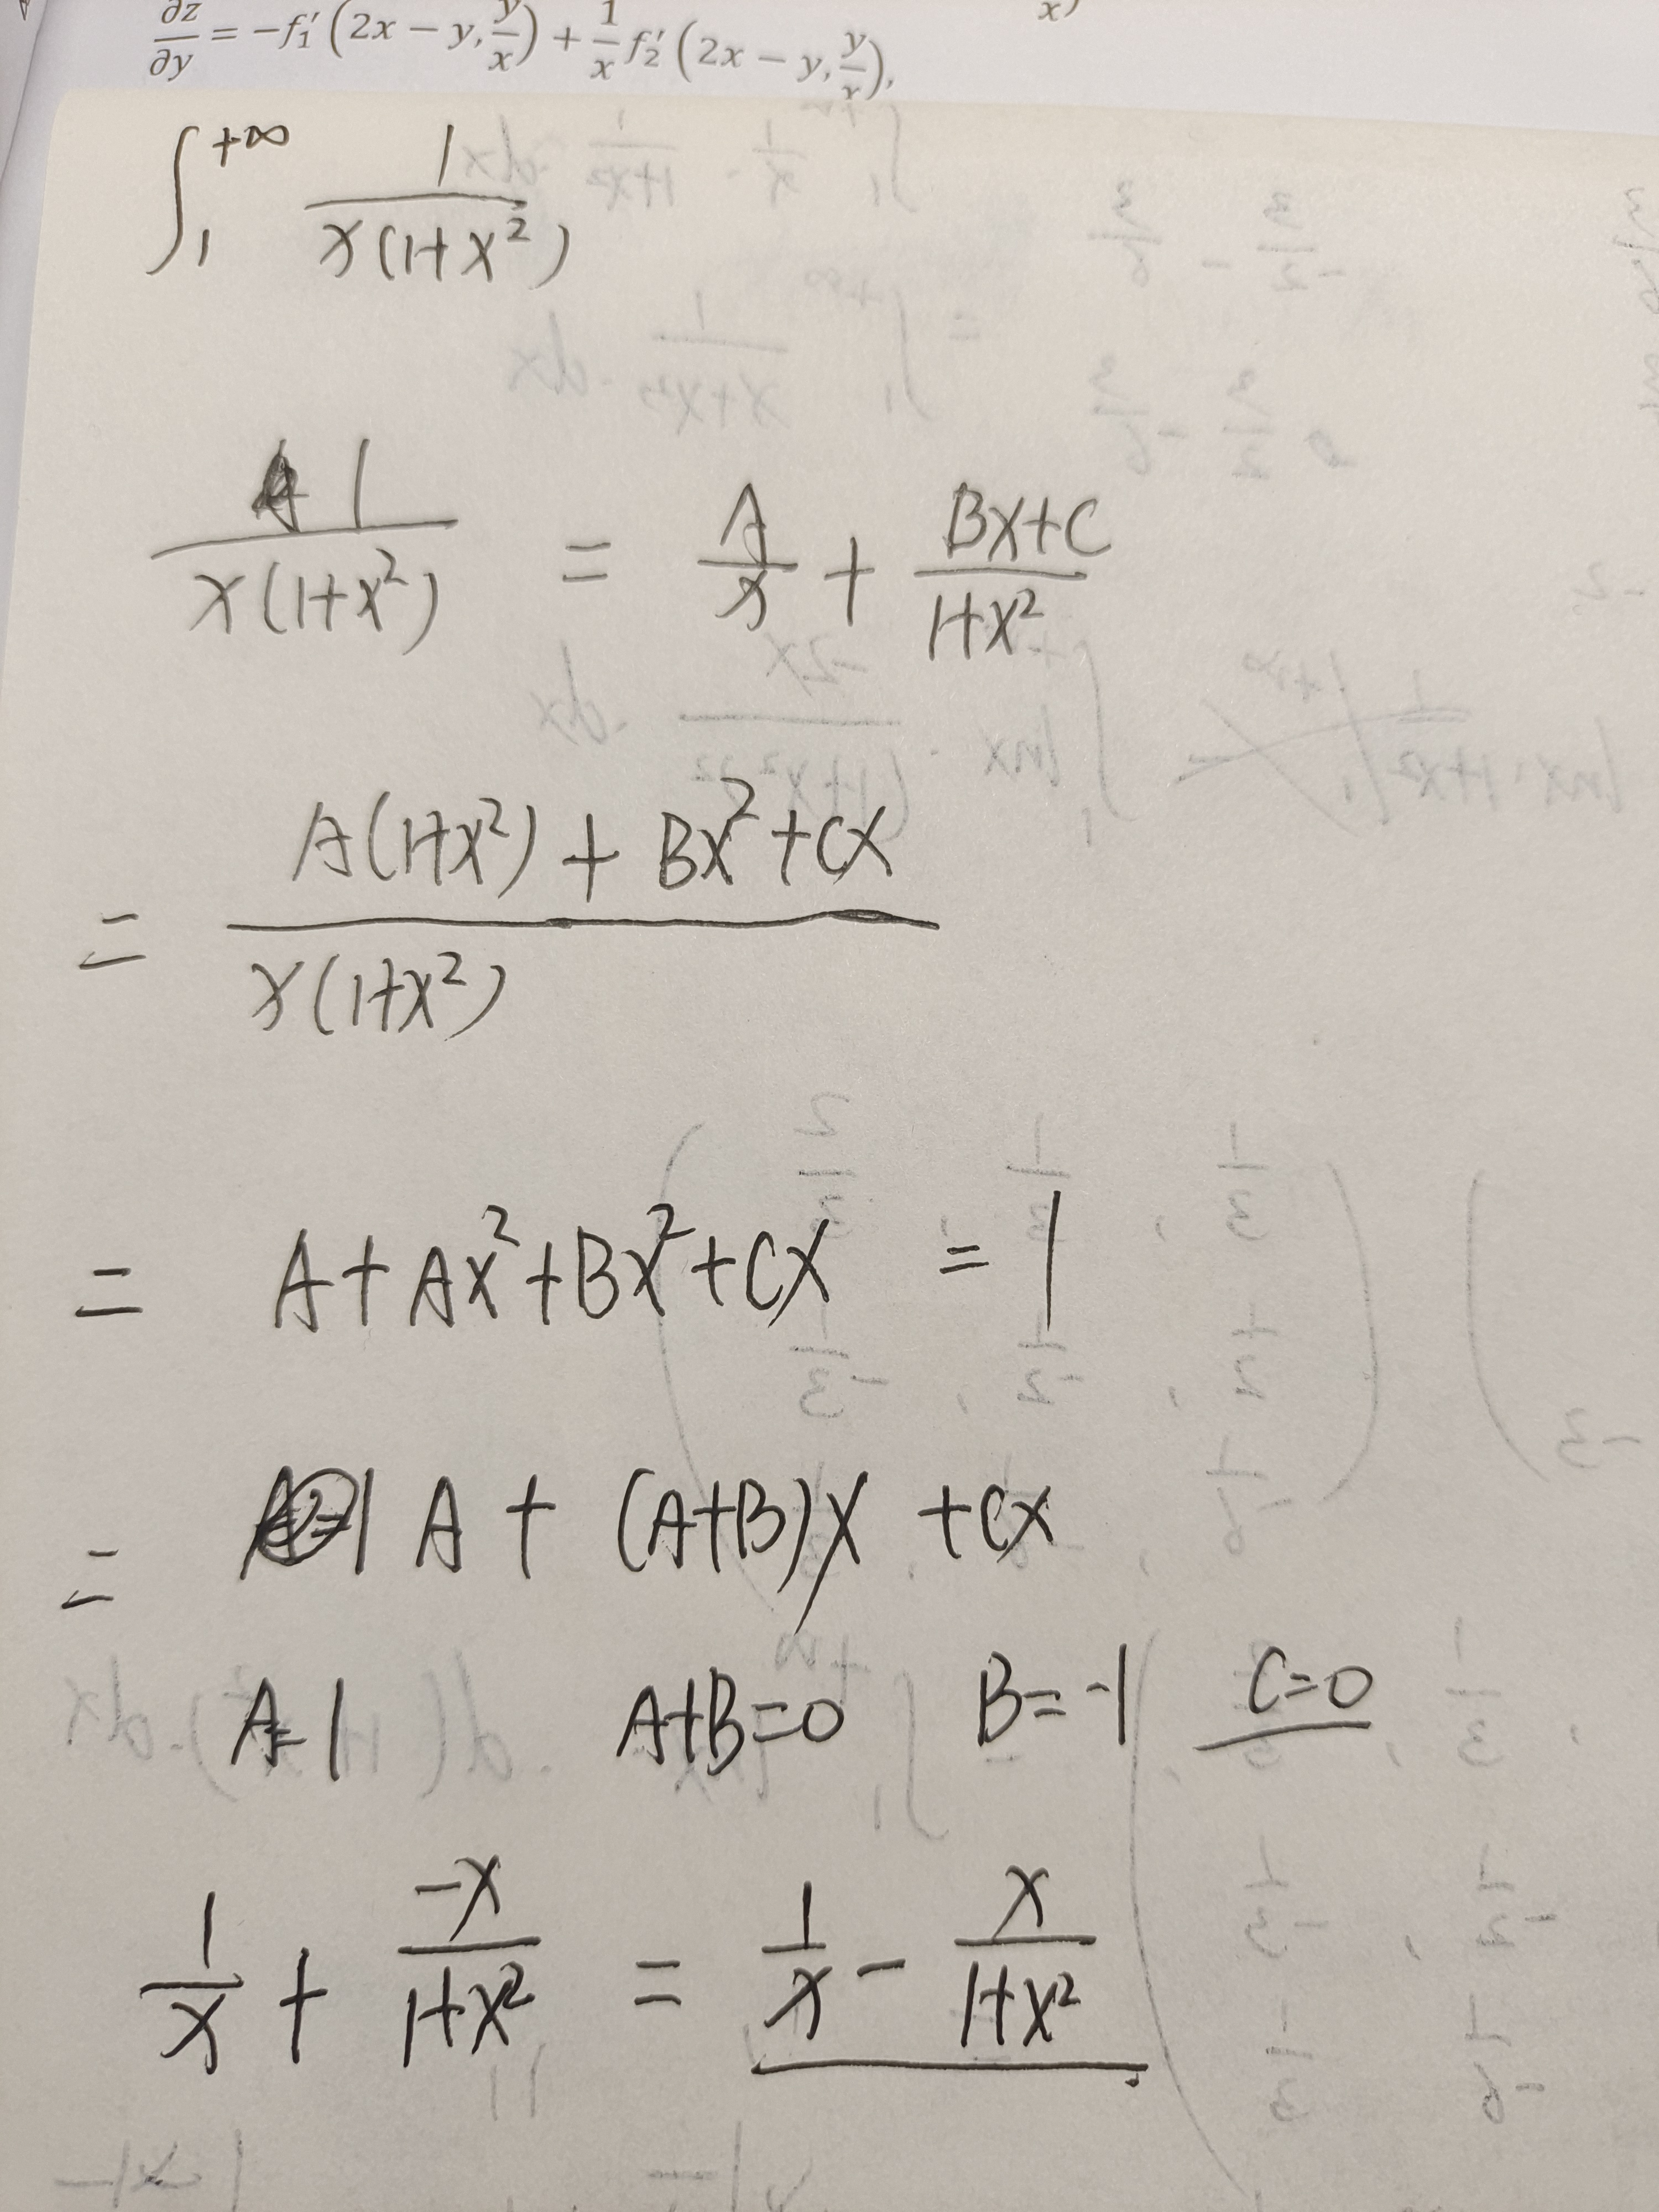 ∂z/∂y = −f₁′(2x − y, y/x) + 1/x f₂′(2x − y, y/x),
x)
∫₁^{+∞} 1/(x(1+x²))
1/(x(1+x²)) = A/x + (Bx+C)/(1+x²)
= (A(1+x²) + Bx²+Cx)/(x(1+x²))
= A+Ax²+Bx²+Cx = 1
= A + (A+B)x +Cx
A=1 A+B=0 B=-1 C=0
1/x + -x/(1+x²) = 1/x - x/(1+x²)